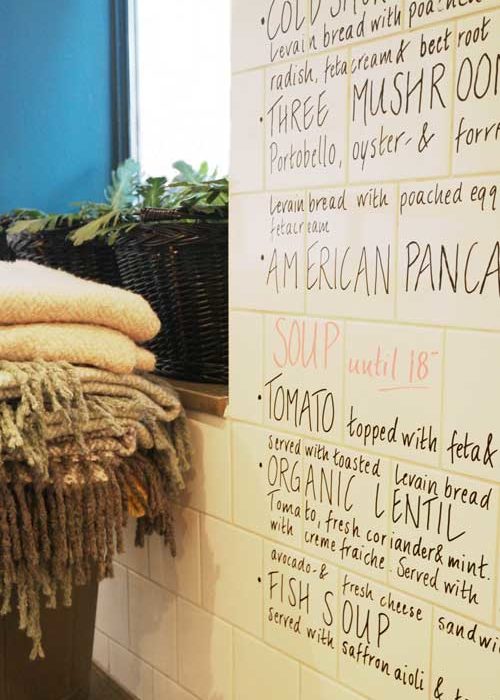 • COLD SMOK
Levain bread with poached
radish, feta cream & beet root
• THREE MUSHROOM
Portobello, oyster- & forr
Levain bread with poached egg
feta cream
• AMERICAN PANCA
SOUP until 18-
• TOMATO topped with feta &
served with toasted Levain bread
• ORGANIC LENTIL
Tomato, fresh coriander & mint.
with creme fraiche. Served with
avocado- & fresh cheese sandwi
• FISH SOUP
served with saffron aioli &